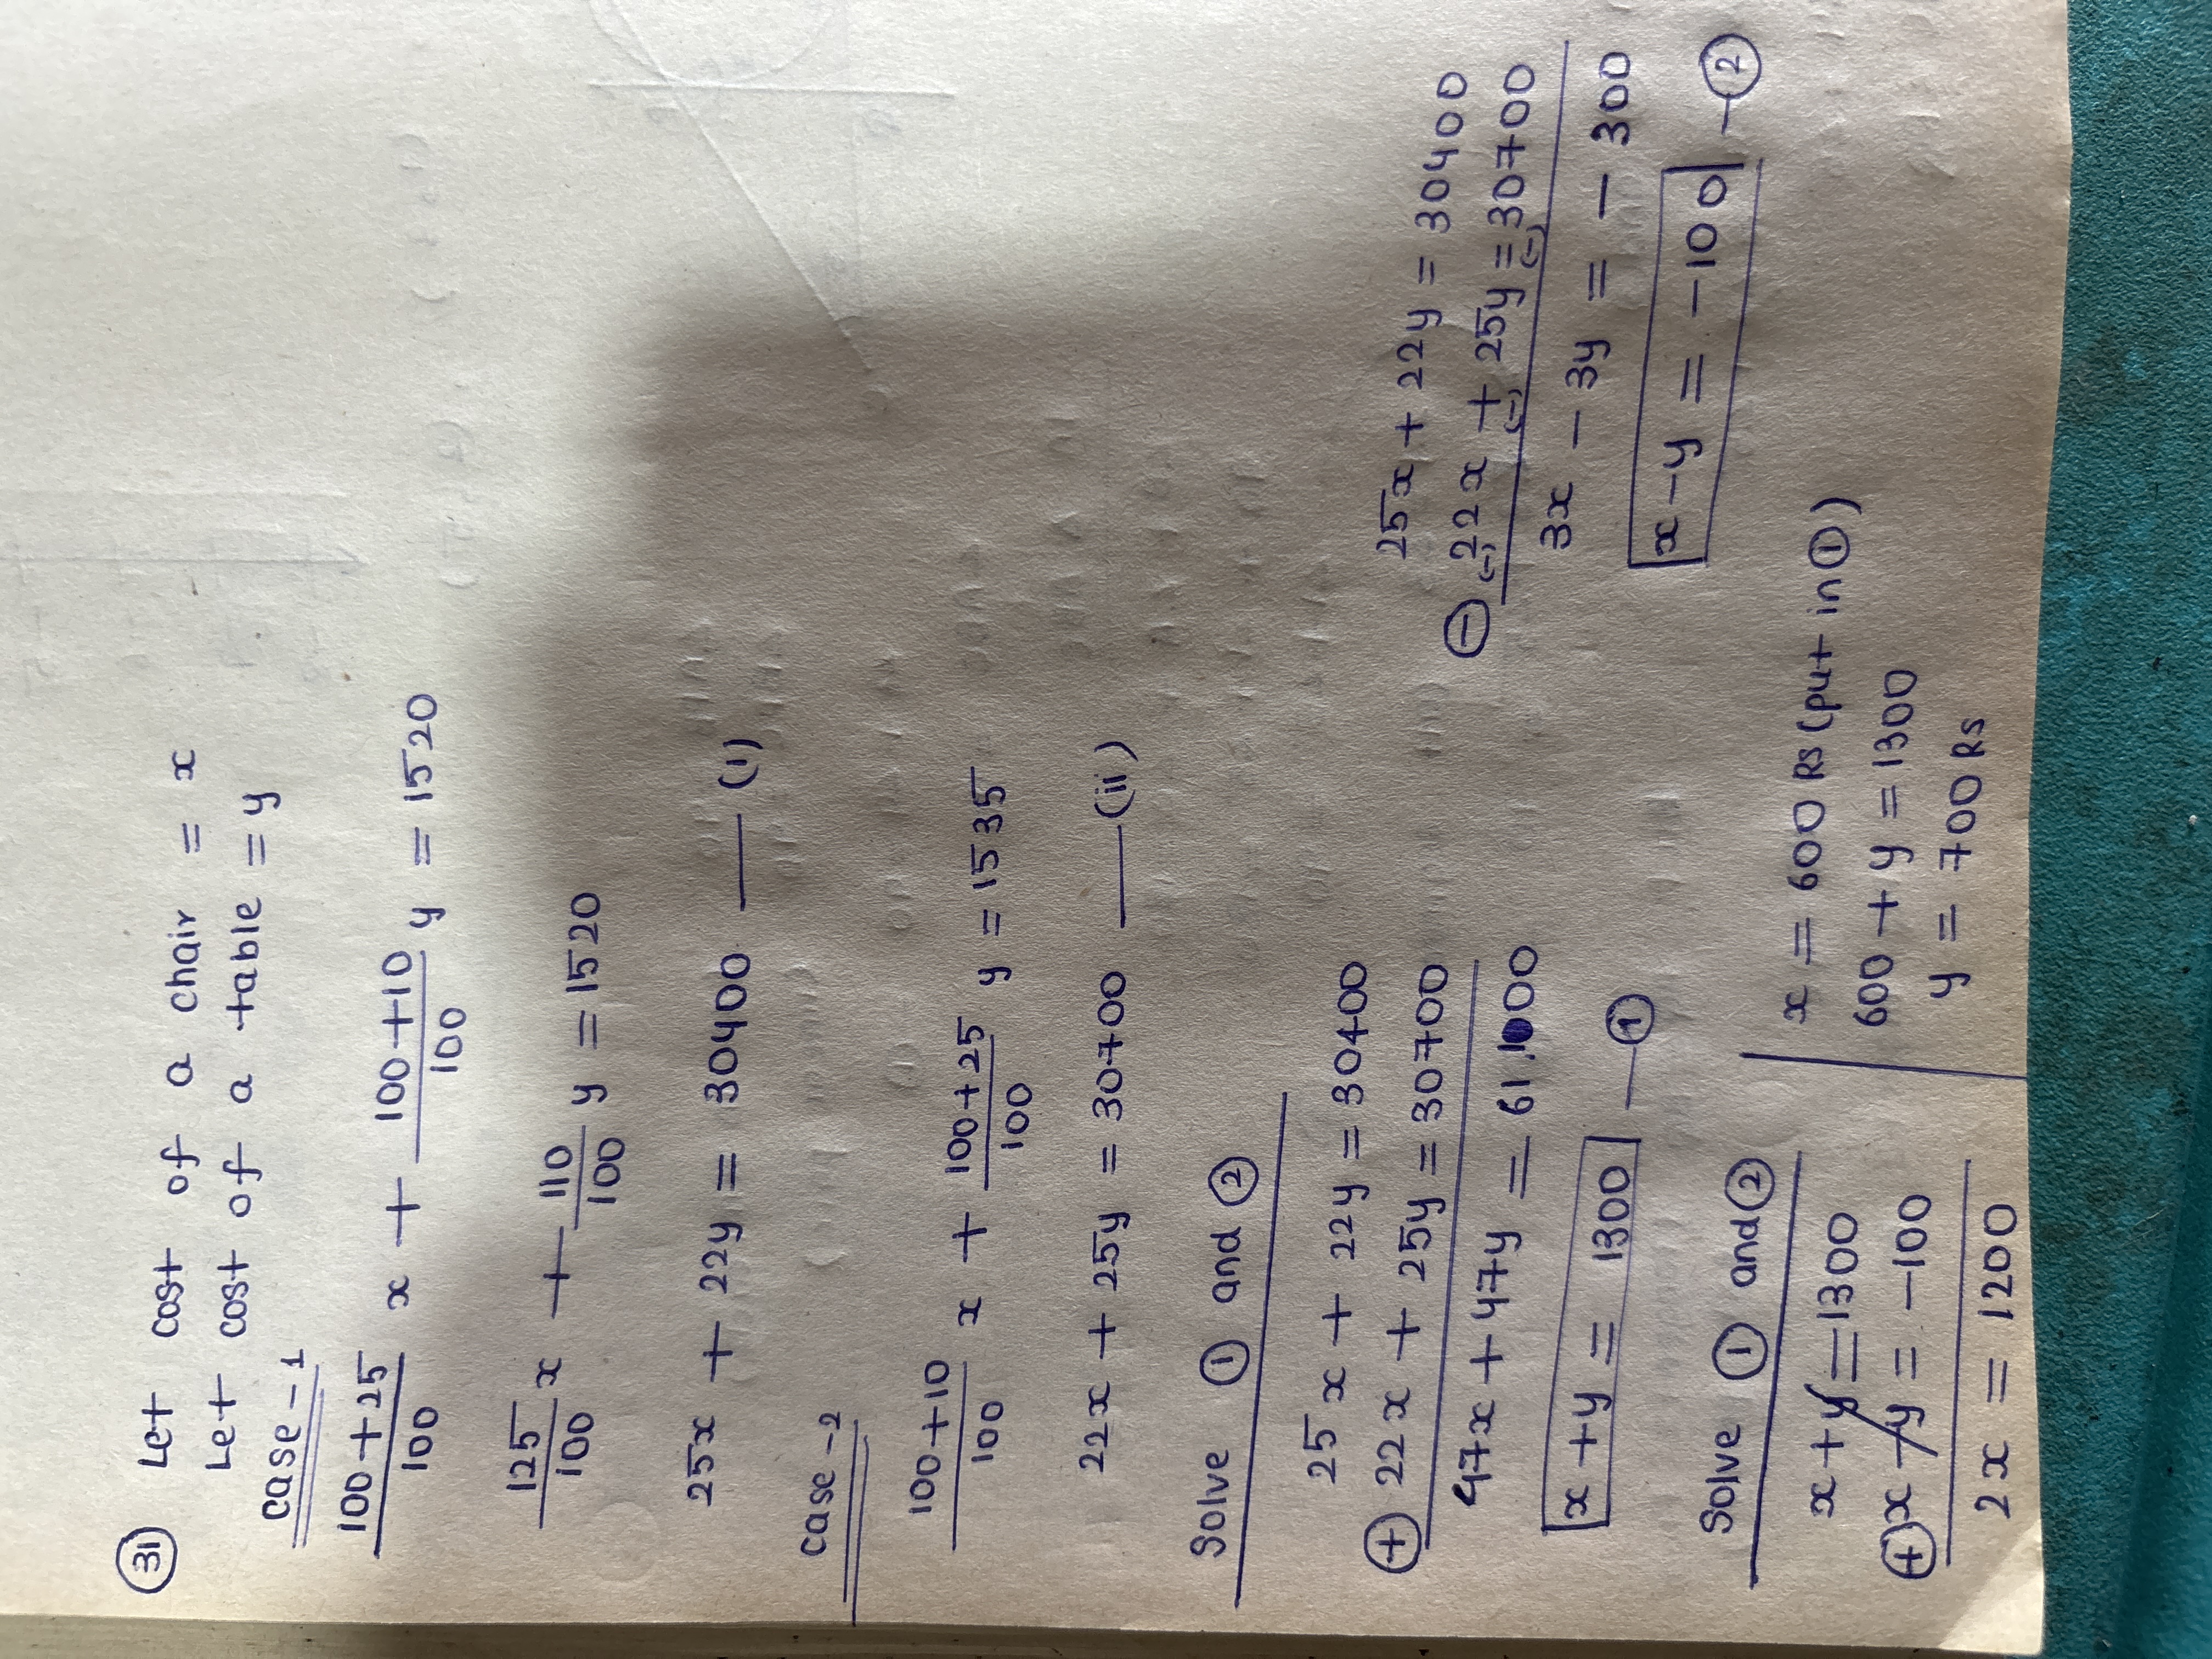 31 Let cost of a chair = x
Let cost of a table = y
case-1
100+25/100 x + 100+10/100 y = 1520
125/100 x + 110/100 y = 1520
25x + 22y = 30400 — (i)
case-2
100+10/100 x + 100+25/100 y = 1535
22x + 25y = 30700 — (ii)
Solve ① and ②
25x + 22y = 30400
⊕ 22x + 25y = 30700
47x + 47y = 61100
x + y = 1300 — ①
25x + 22y = 30400
⊖ 22x + 25y = 30700
(-) (-) (-)
3x - 3y = - 300
x - y = -100 — ②
Solve ① and ②
x + y = 1300
⊕ x - y = -100
2x = 1200
x = 600 Rs (put in ①)
600 + y = 1300
y = 700 Rs